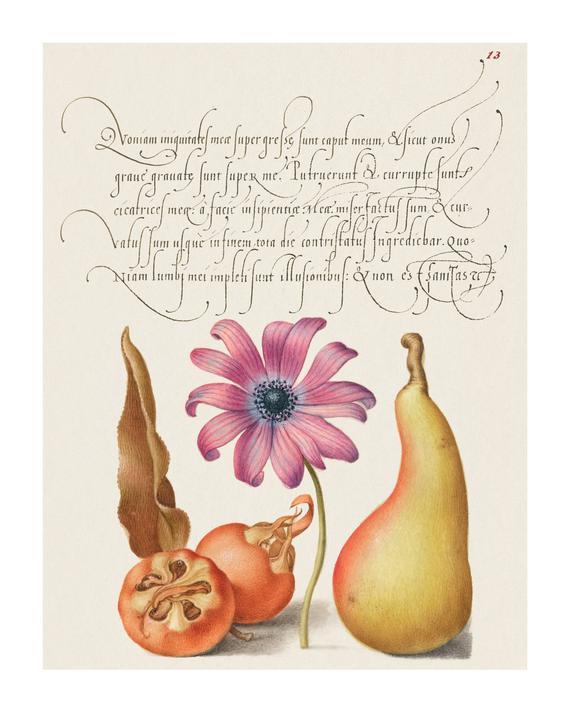 13
Quoniam iniquitates meæ supergressæ sunt caput meum, & sicut onus
graue grauatæ sunt super me. Putruerunt & currupte sunt
cicatrices meæ: à facie insipientiæ meæ. miser factus sum & cur-
vatus sum usque in finem. tota die contristatus Ingrediebar. Quo-
Niam lumbi mei impleti sunt illusionibus: & non est sanitas